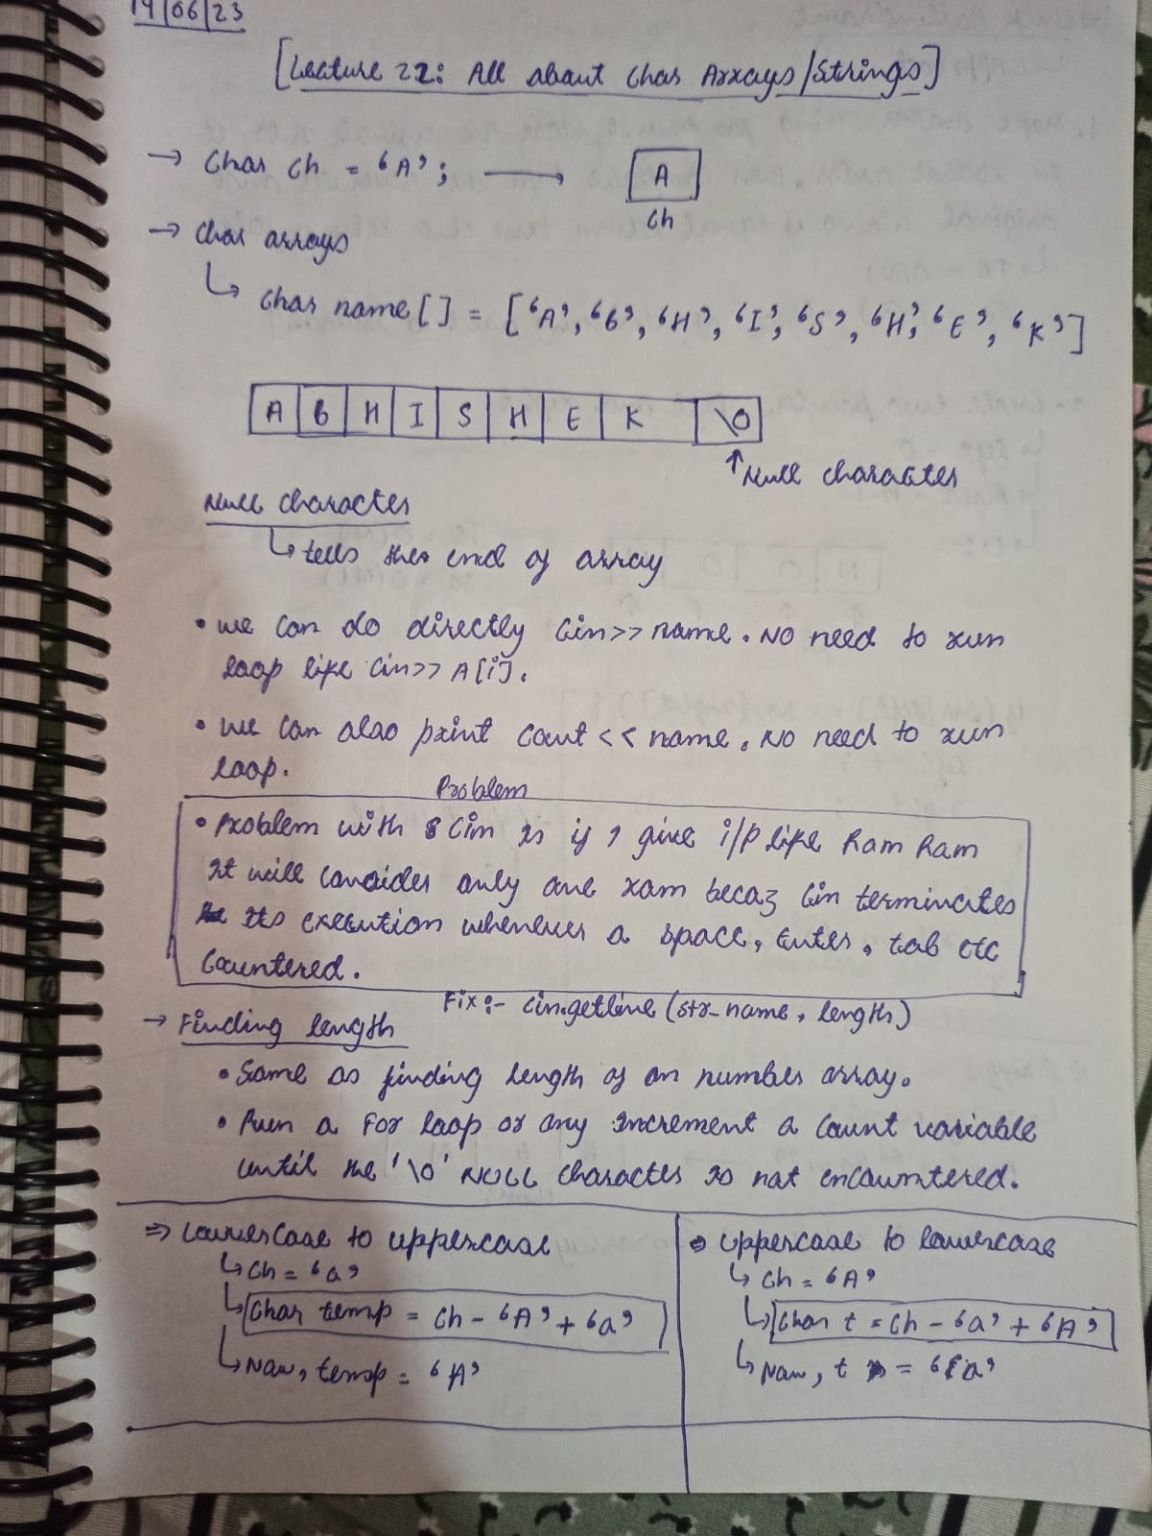 14/06/23
[Lecture 22: All about Char Arrays/Strings]
→ Char Ch = 'A'; → A
Ch
→ Char arrays
↳ Char name[] = ['A', 'B', 'H', 'I', 'S', 'H', 'E', 'K']
A B H I S H E K \0
↑ Null character
Null character
↳ tells the end of array
• We can do directly Cin>>name. No need to run
loop like Cin>> A[i].
• We can also print Cout << name. No need to run
loop.
Problem
• Problem with Cin is if I give i/p like Ram Ram
It will consider only one ram becaz Cin terminates
Its execution whenever a space, Enter, tab etc
Countered.
Fix:- Cin.getline (str_name, length)
→ Finding length
• Same as finding length of an number array.
• Run a For loop or any Increment a Count variable
until the '\0' NULL character is not encountered.
⇒ Lowercase to uppercase
↳ Ch = 'a'
↳ Char temp = Ch - 'A' + 'a'
↳ Now, temp = 'A'
⇒ Uppercase to lowercase
↳ Ch = 'A'
↳ Char t = Ch - 'a' + 'A'
↳ Now, t = 'a'